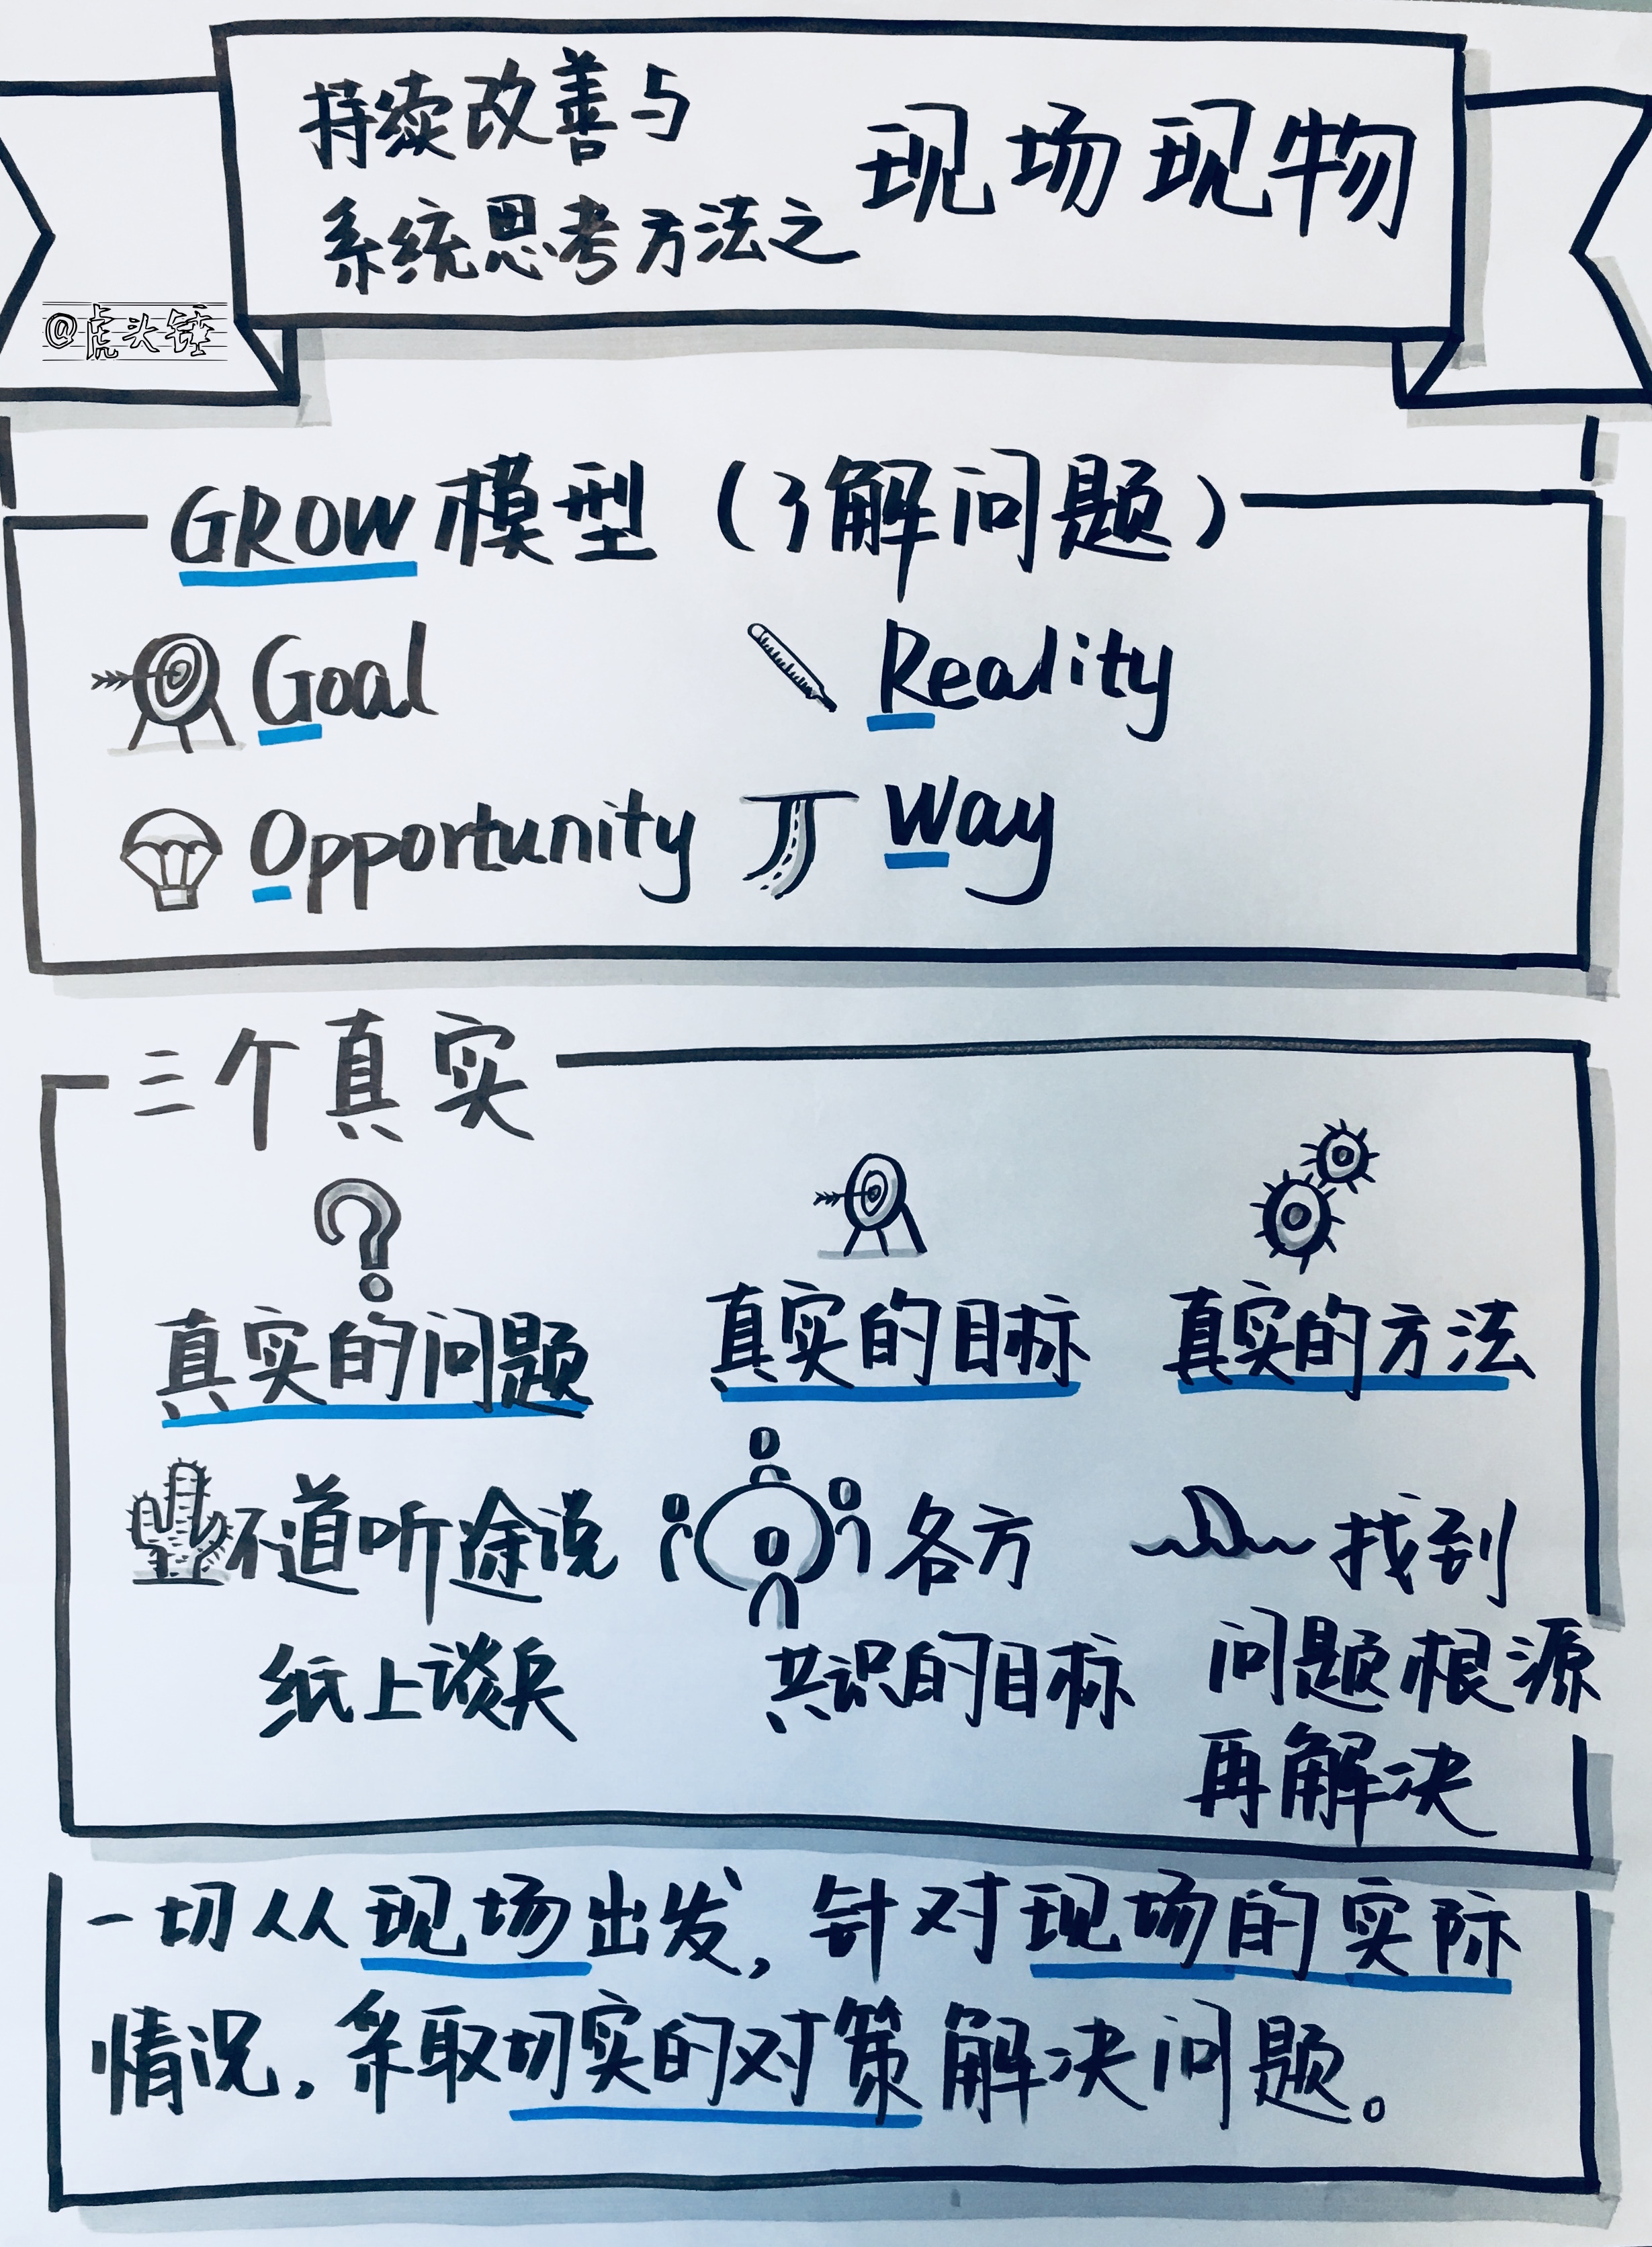 持续改善与
系统思考方法之
现场现物
@虎头锤
GROW模型（了解问题）
Goal
Reality
Opportunity
Way
三个真实
真实的问题
真实的目标
真实的方法
不道听途说
纸上谈兵
各方
共识的目标
找到
问题根源
再解决
一切从现场出发，针对现场的实际
情况，采取切实的对策解决问题。